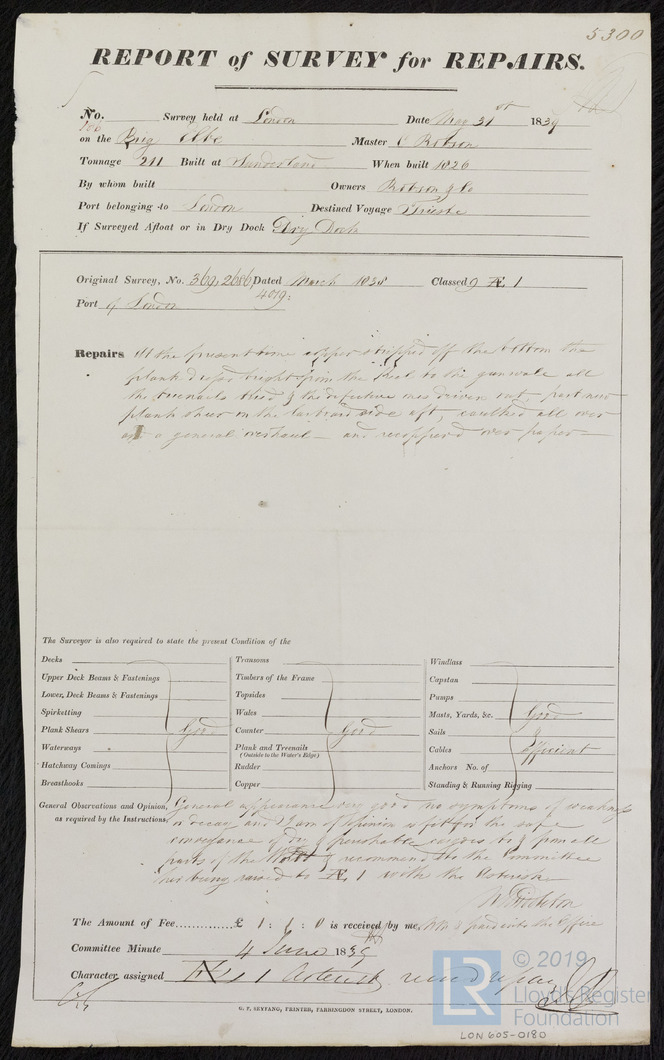 5300
REPORT of SURVEY for REPAIRS.
No. 186 Survey held at London Date May 31st 1839
on the Brig Elbe Master C Robson
Tonnage 211 Built at Sunderland When built 1826
By whom built Owners Robson & Co
Port belonging to London Destined Voyage Trieste
If Surveyed Afloat or in Dry Dock Dry Dock
Original Survey, No. 369, 2686, 4019: Dated March 1838 Classed 9 Æ 1
Port of London
Repairs At the present time copper stripped off the bottom the
plank dressed bright from the keel to the gunwale all
the treenails tried & the defective ones driven out, part new
plank sheer on the larboard side aft, caulked all over
and a general overhaul – and recoppered over paper –
The Surveyor is also required to state the present Condition of the
Decks
Upper Deck Beams & Fastenings
Lower, Deck Beams & Fastenings
Spirketting
Plank Shears Good
Waterways
Hatchway Comings
Breasthooks
Transoms
Timbers of the Frame
Topsides
Wales
Counter Good
Plank and Treenails
(Outside to the Water's Edge)
Rudder
Copper
Windlass
Capstan
Pumps
Masts, Yards, &c. Good
Sails &
Cables efficient
Anchors No. of
Standing & Running Rigging
General Observations and Opinion, General appearance very good no symptoms of weakness
as required by the Instructions, or decay and I am of opinion is fit for the safe
conveyance of dry & perishable cargoes to & from all
parts of the World & recommend to the Committee
her being raised to Æ 1 with the Asterisk
The Amount of Fee £ 1 : 1 : 0 is received by me, paid into the Office
Committee Minute 4 June 1839
Character assigned Æ 1 Asterisk
G. F. SEYFANG, PRINTER, FARRINGDON STREET, LONDON.
LR © 2019
Lloyd's Register
Foundation
LON 605-0180